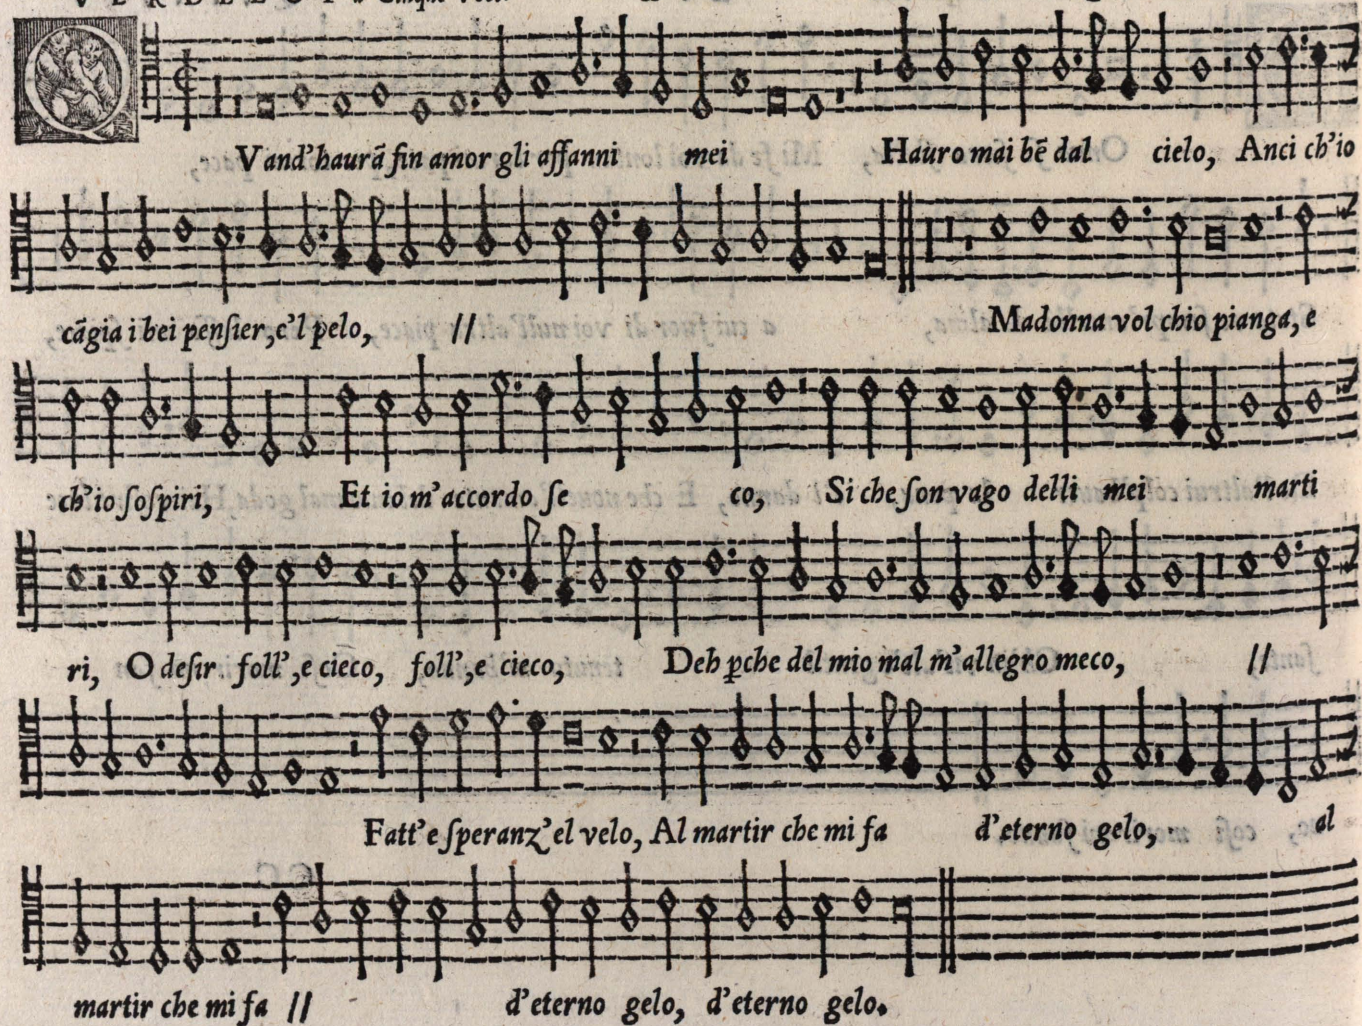 VERDELOT a Cinque Voci.
QVand'haurā fin amor gli affanni mei Hauro mai bē dal cielo, Anci ch'io
cāgia i bei pensier, e'l pelo, // Madonna vol chio pianga, e
ch'io sospiri, Et io m'accordo se co, Si che son vago delli mei marti
ri, O desir foll', e cieco, foll', e cieco, Deh ꝑche del mio mal m'allegro meco, //
Fatt'e speranz'el velo, Al martir che mi fa d'eterno gelo, al
martir che mi fa // d'eterno gelo, d'eterno gelo.